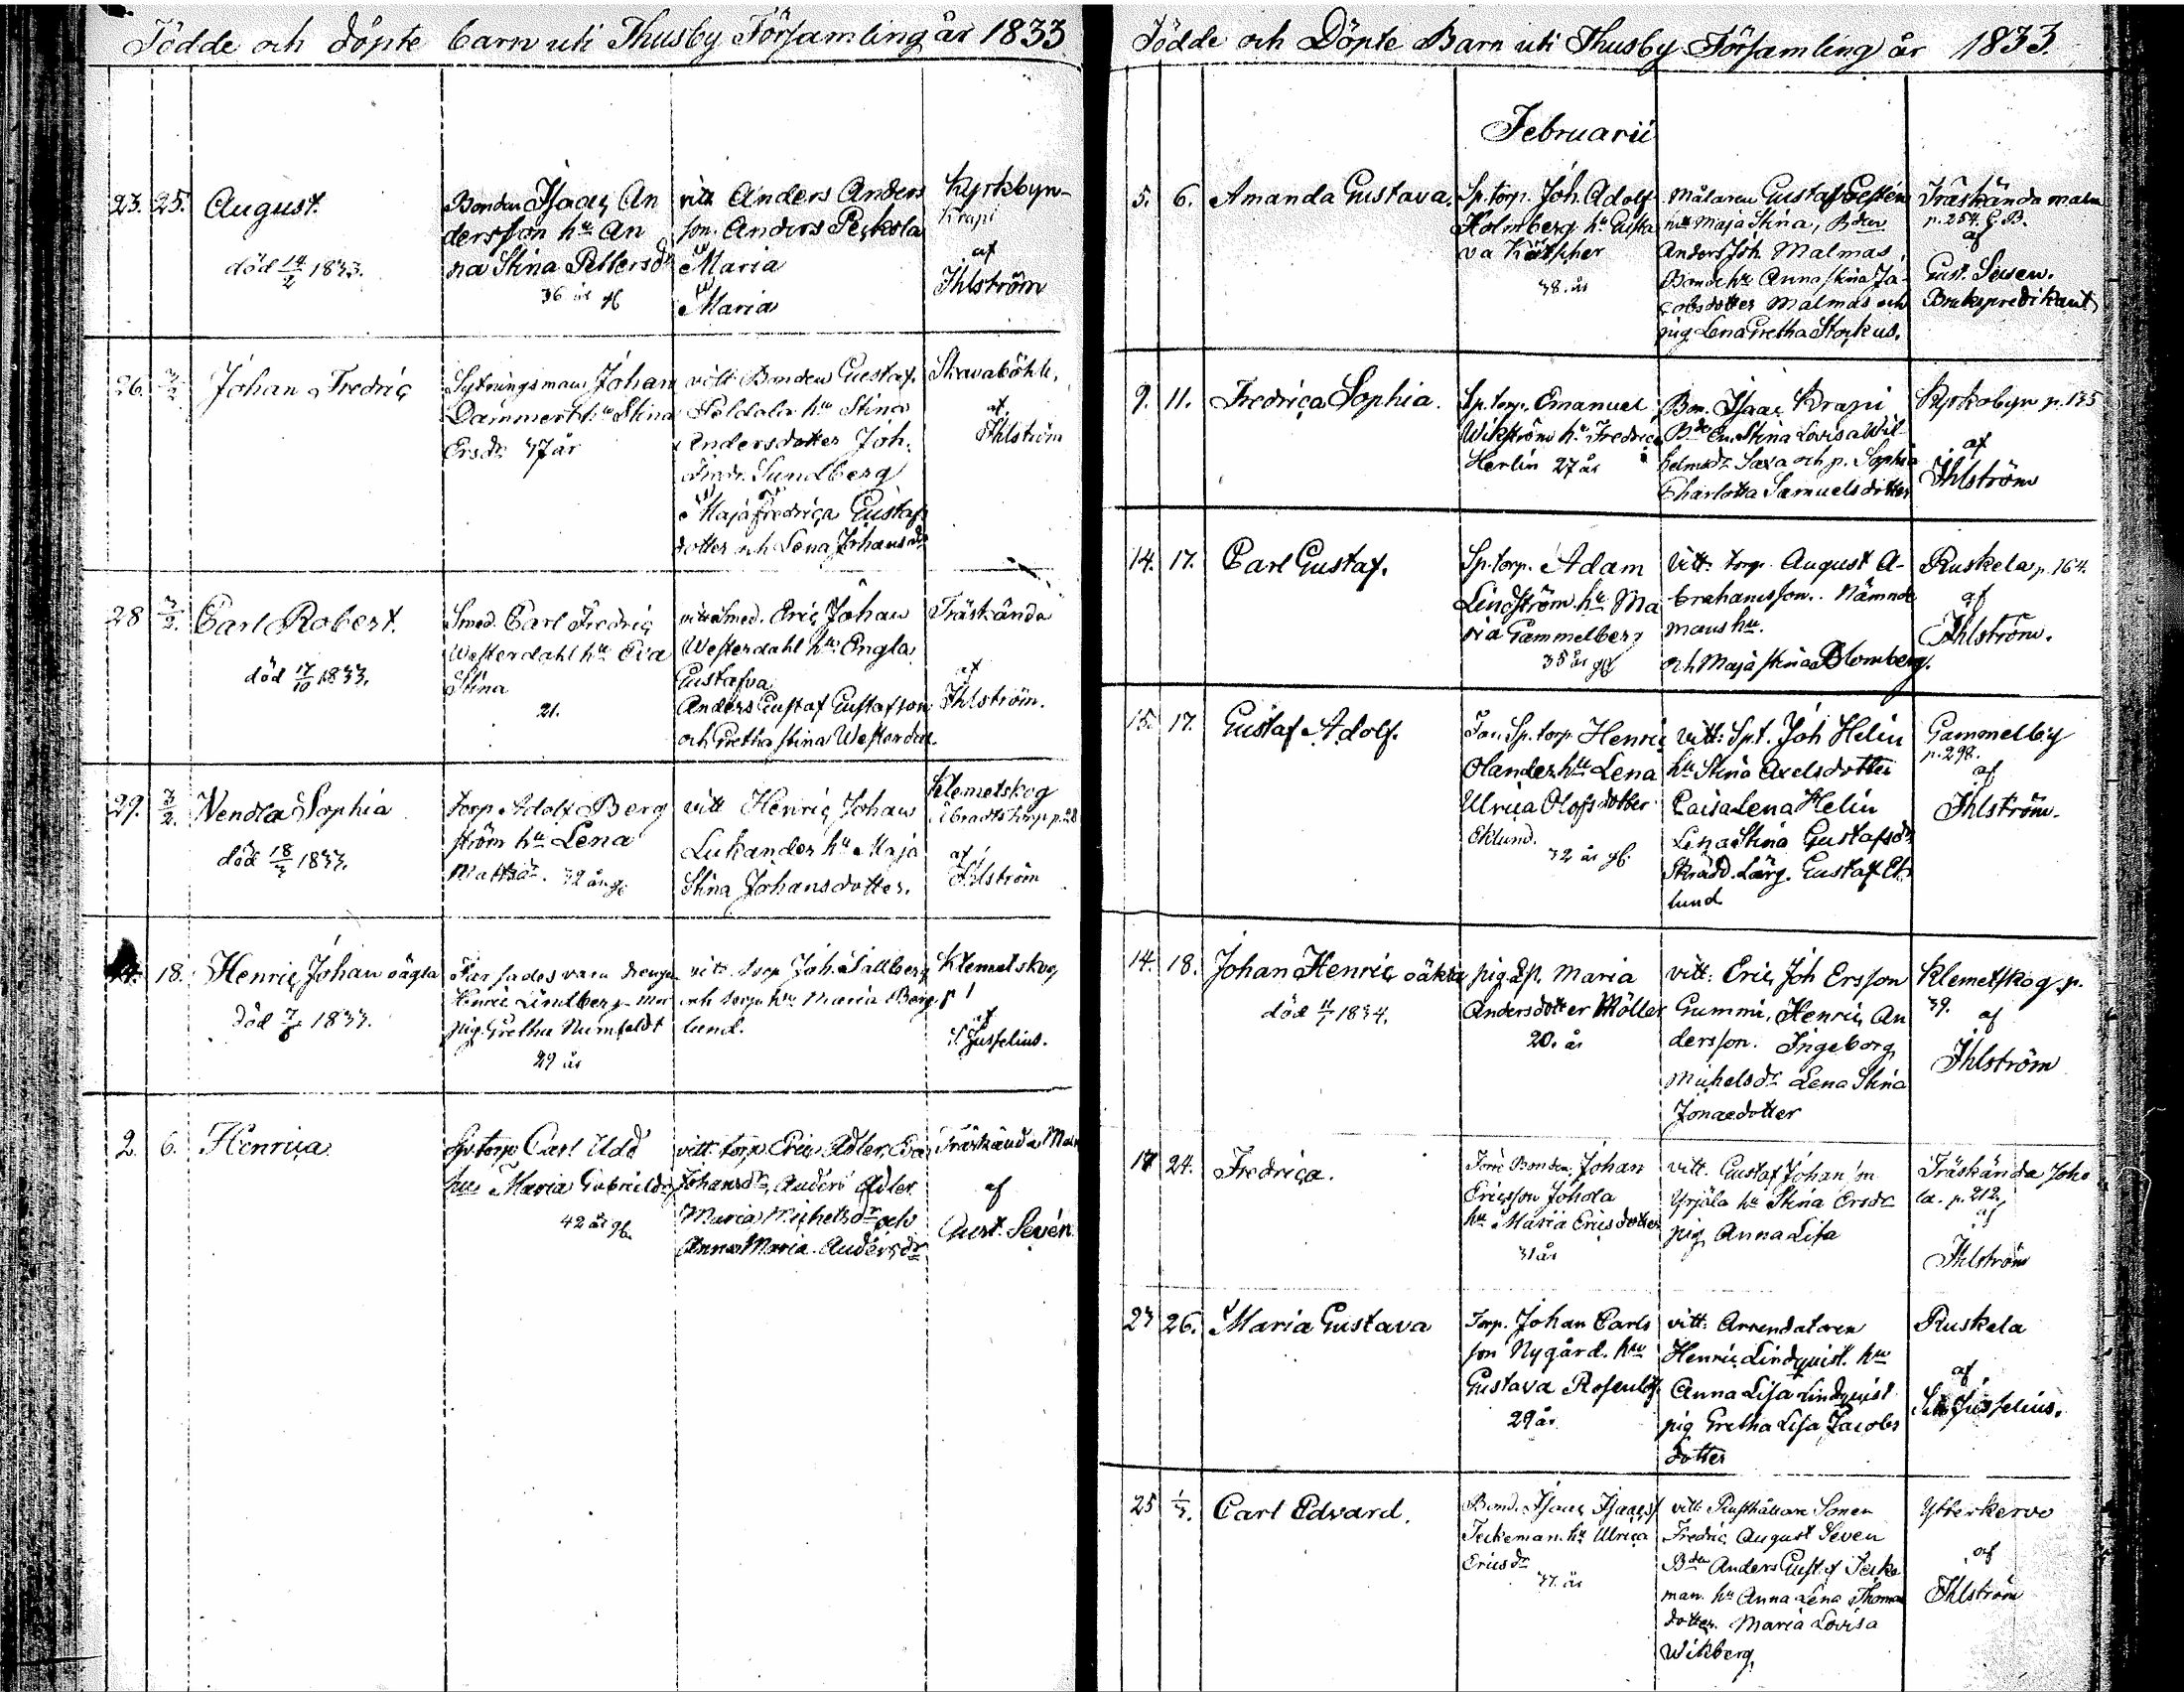 Födde och döpte barn uti Thusby Församling år 1833
23. 25. August.
död 14/2 1833.
Bonden Isaac An
dersson hu An
na Stina Pettersdr
36 år gf
vitt. Anders Anders
son. Anders Peskola
Maria
Maria
Kyrkbyn
Krapi
af
Ihlström
26. 3/2 Johan Fredric
Sytningsman Johan
Dammert hu Stina
Ersdr 37 år
vitt Bonden Gustaf
hu Stina
Andersdotter Joh.
Fredr. Sundberg
Maja Fredrica Gustafs
dotter och Lena Johansdr
Skavaböhle.
af
Ihlström
28 3/2. Carl Robert.
död 17/10 1833.
Smed. Carl Fredric
Westerdahl hu Eva
Stina
21.
vitt Smed. Eric Johan
Westerdahl hu Engla
Gustafva
Anders Gustaf Gustafson
och Gretha Stina Westerdal.
Träskända
af
Ihlström.
29. 3/2. Vendla Sophia
död 18/3 1833.
torp Adolf Berg
ström hu Lena
Mattsdr. 32 år gf
vitt Henric Johan
Lukander hu Maja
Stina Johansdotter.
Klemetskog
af
Ihlström
18. Henric Johan oägta
död 7/6 1833.
Far sades vara drengen
Henric Lindberg mor
pig. Gretha Numfeldt
29 år
vitt. torp Joh. Sallberg
och torp. hu Maria Berg
lund.
Klemetskog
af
Jusselius.
2. 6. Henrica
Sp. torp Carl Udd
hu Maria Gabrielsdr
42 år gf.
vitt. torp Eric Adler, Eva
Johansdr, Anders Adler
Maria Michelsdr och
Anna Maria Andersdr
Träskända Malm
af
Gust. Sevén
Födde och Döpte Barn uti Thusby Församling år 1833.
Februarii
5. 6. Amanda Gustava.
Sp. torp. Joh. Adolf
Holmberg hu Gusta
va Kätscher
38. år
Målaren Gustaf
Maja Stina, Bden
Anders Joh. Malmas
Bonde hu Anna Stina Ja
cobsdotter Malmas och
pig. Lena Gretha Storkus.
Träskända malm
p. 254. C. B.
af
Gust. Seven.
Brukspredikant
9. 11. Fredrica Sophia.
Sp. torp. Emanuel
Wikström hu Fredrica
Herlin 27 år
Bon. Isaac Krapi
Stina Lovisa Wil
helmsdr Saxa och p. Sophia
Charlotta Samuelsdotter
Kyrkobyn p. 135
af
Ihlström
14. 17. Carl Gustaf.
Sp. torp. Adam
Lindström. hu Ma
ria Gammelberg
35 år gf
vitt. torp. August A-
brahamsson. Nämnde
mans hu.
och Maja Stina Blomberg.
Ruskela p. 164.
af
Ihlström.
15. 17. Gustaf Adolf.
Sp. torp Henric
Olander hu Lena
Ulrica Olofsdotter
Eklund. 32 år gf.
vitt: Sp. t. Joh Helin
hu Stina Axelsdotter
Caisa Lena Helin
Lena Stina Gustafsdr
Skrädd. Lärg. Gustaf Ek
lund
Gammelby
p. 298.
af
Ihlström.
14. 18. Johan Henric oäkta
död 11/7 1834.
pig. Maria
Andersdotter Möller
20. år
vitt: Eric Joh Ersson
Gummi, Henric An
dersson. Ingeborg
Michelsdr Lena Stina
Jonaedotter
Klemetskog. p.
39. af
Ihlström
17 24. Fredrica.
Bonden Johan
Ericsson Johola
hu Maria Ericsdotter
31 år
vitt. Gustaf Johan
Yrjälä hu Stina Ersdr
pig Anna Lisa
Träskända Joho
la. p. 212.
af
Ihlström
23 26. Maria Gustava
Torp. Johan Carls
son Nygård. hu
Gustava Rosenlöf
29 år.
vitt: Arrendatoren
Henric Lindquist. hu
Anna Lisa Lindquist
pig Gretha Lisa Jacobs
dotter
Ruskela
af
Jusselius.
25 1/3. Carl Edvard.
Bond. Isaac Isaacss
Teckeman. hu Ulrica
Ericsdr
37. år
vitt Rusthållare Sonen
Fredric August Seven
Bden Anders Gust. Tecke
man. hu Anna Lena Thomas
dotter. Maria Lovisa
Wikberg,
Ytterkervo
af
Ihlström